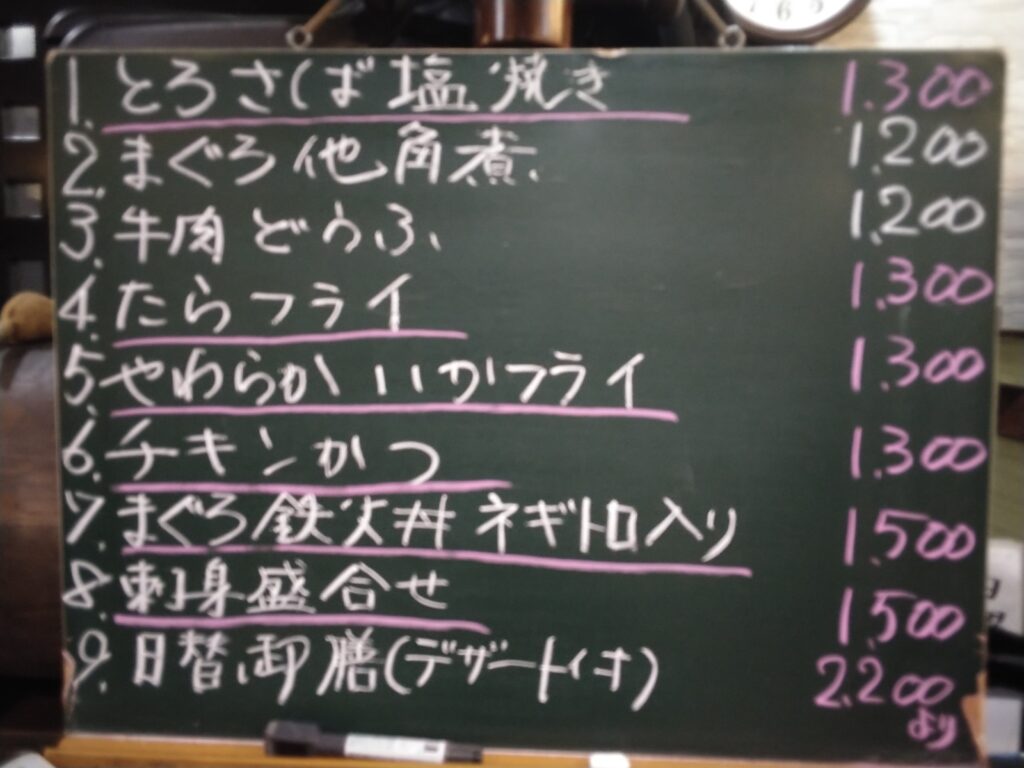 1. とろさば塩焼き 1.300
2. まぐろ他角煮 1.200
3. 牛肉どうふ 1.200
4. たらフライ 1.300
5. やわらかいかフライ 1.300
6. チキンかつ 1.300
7. まぐろ鉄火丼 ネギトロ入り 1.500
8. 刺身盛合せ 1.500
9. 日替御膳(デザート付) 2.200
より